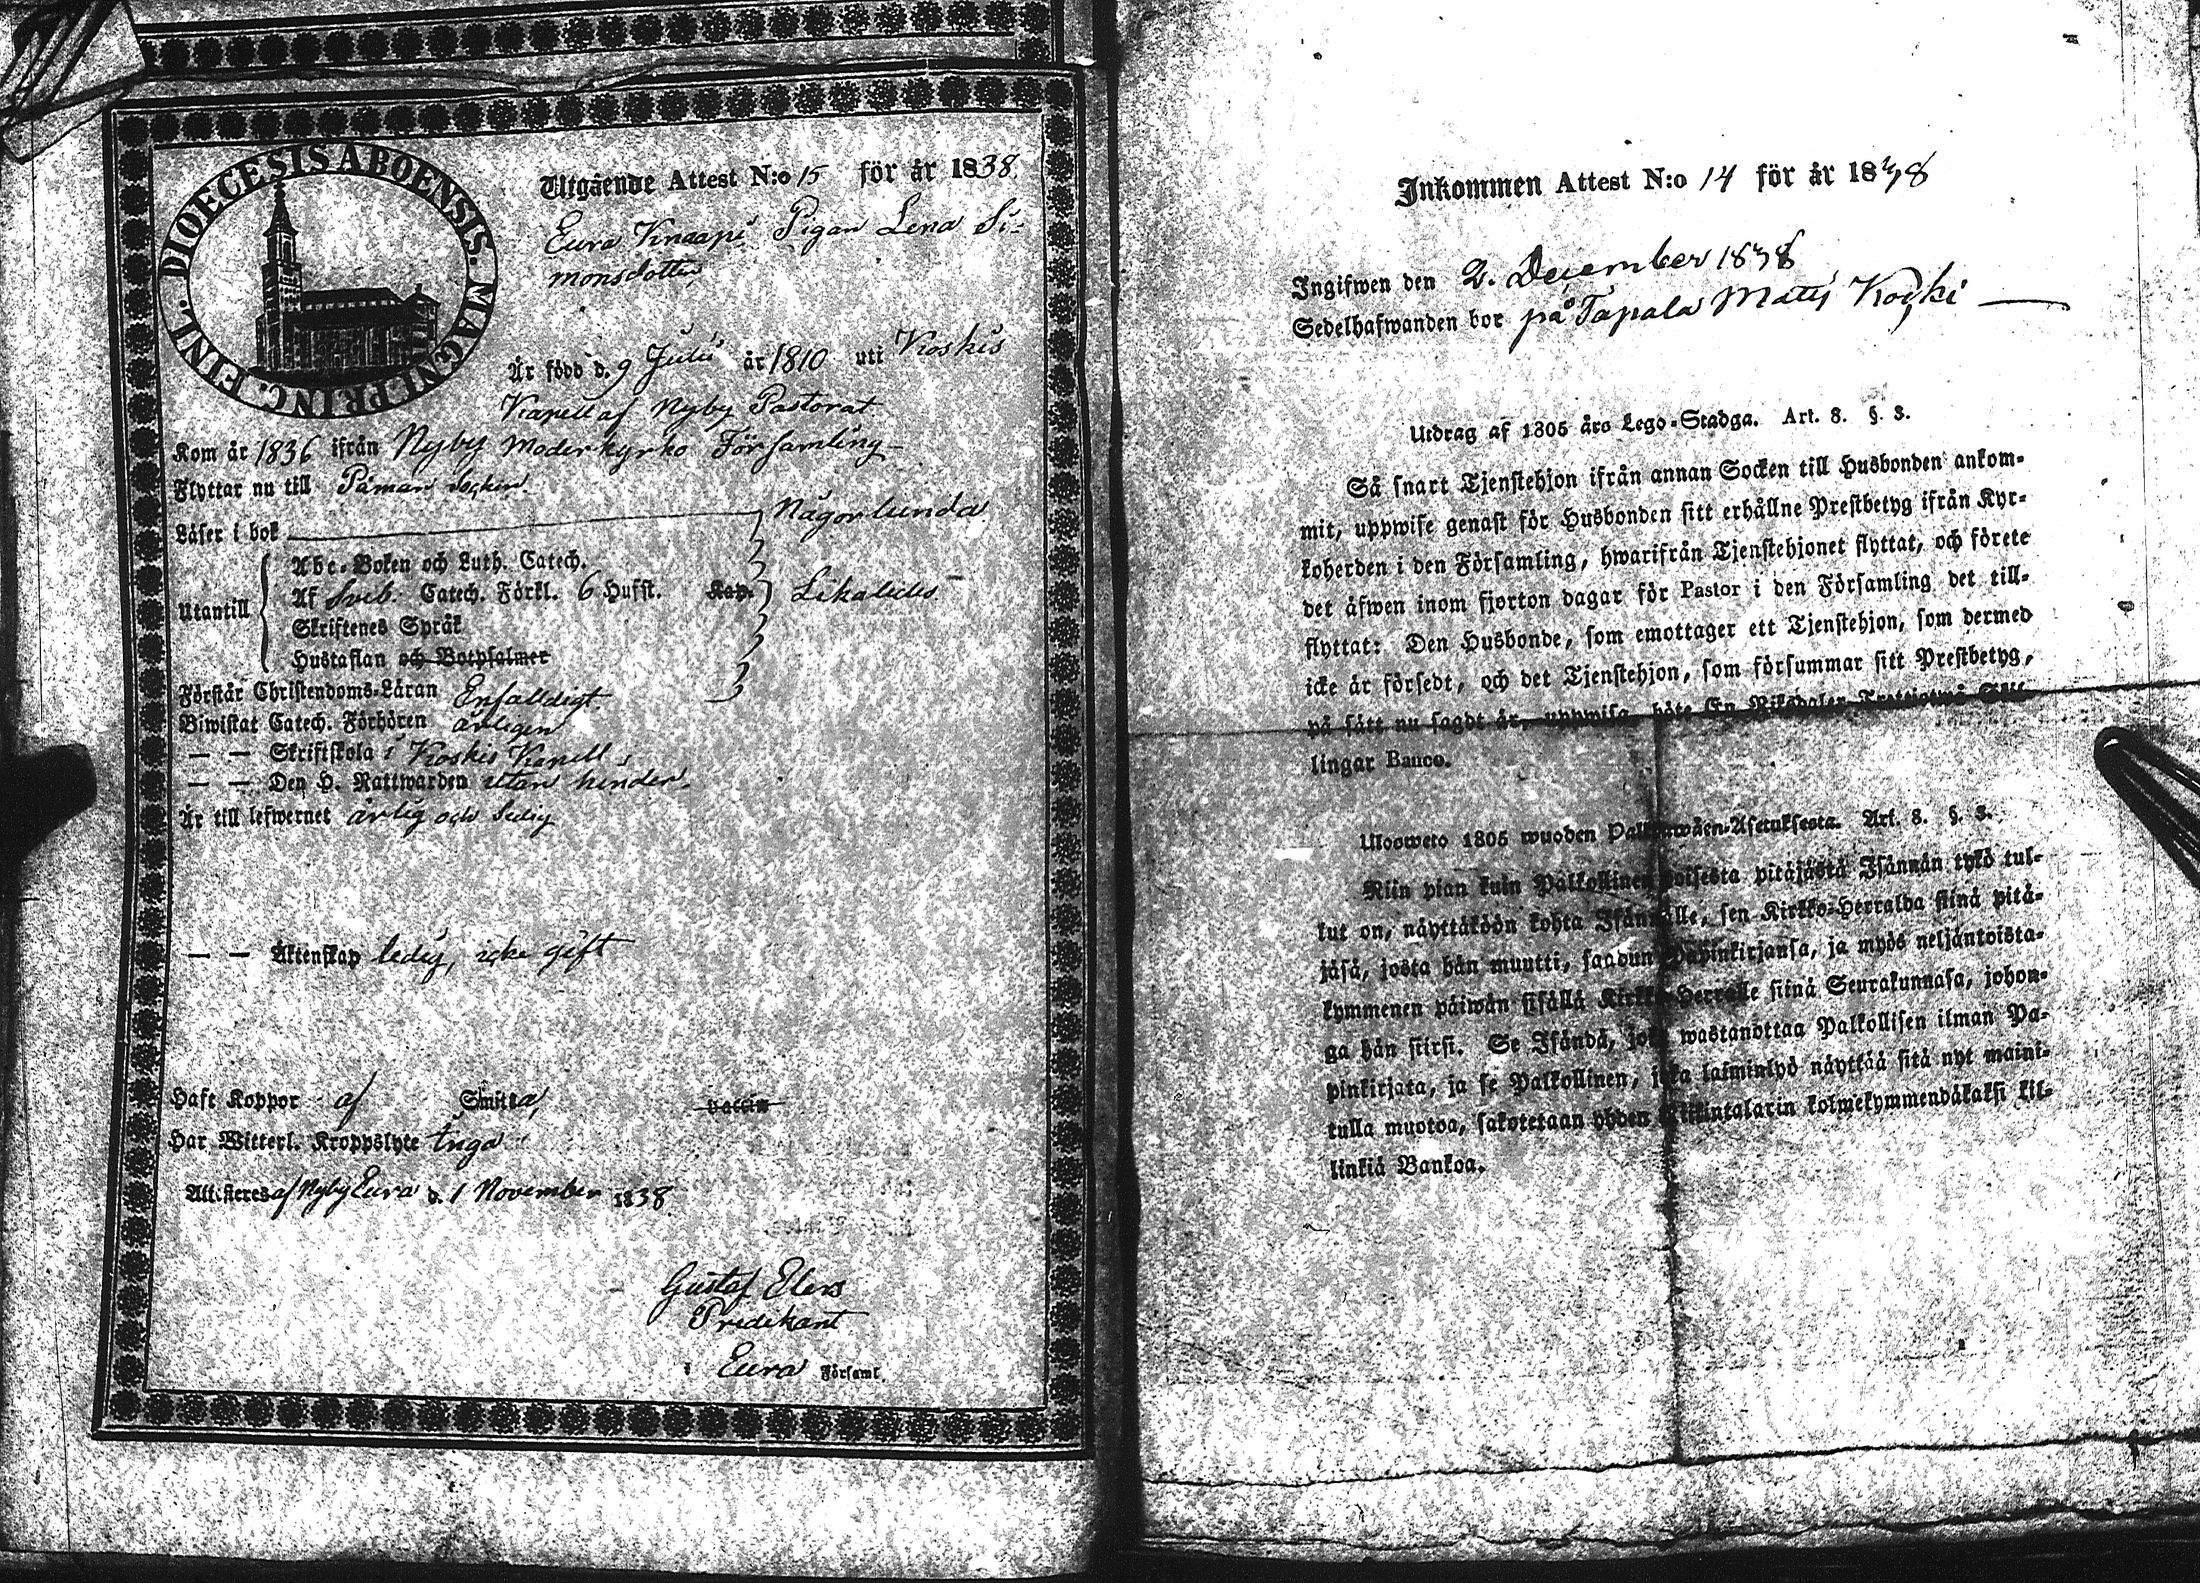 DIOECESIS ABOENSIS. MAGNI PRINC. FINL.
Utgående Attest N:o 15 för år 1838.
Eura Knaapi Pigan Lena Si-
monsdotter
Är född d. 9 Julii år 1810 uti Koskis
Kapell af Nyby Pastorat
Kom år 1836 ifrån Nyby Moderkyrko Församling
Flyttar nu till Påmar Socken.
Läser i bok Någorlunda
Utantill
Abc-Boken och Luth. Catech.
Af Sveb. Catech. Förkl. 6 Hufst. Kap. Likaledes
Skriftenes Språk
Hustaflan och Botpsalmer
Förstår Christendoms-Läran Enfaldigt
Biwistat Catech. Förhören årligen
— — Skriftskola i Koskis Kapell
— — Den H. Nattwarden utan hinder.
Är till lefwernet ärlig och Sedig
— — Äktenskap ledig, icke gift
Haft Koppor af Smitta, vaccin
Har Witterl. Kroppslyte Inga
Attesteres af Nyby Eura d. 1 November 1838
Gustaf Elers
Predikant
i Eura Församl.
Inkommen Attest N:o 14 för år 1838
Ingifwen den 2. December 1838
Sedelhafwanden bor på Tapala Matts Koski
Utdrag af 1805 års Lego-Stadga. Art. 8. §. 3.
Så snart Tjenstehjon ifrån annan Socken till Husbonden ankom-
mit, uppwise genast för Husbonden sitt erhållne Prestbetyg ifrån Kyr-
koherden i den Församling, hwarifrån Tjenstehjonet flyttat, och förete
det äfwen inom fjorton dagar för Pastor i den Församling det till-
flyttat: Den Husbonde, som emottager ett Tjenstehjon, som dermed
icke är försedt, och det Tjenstehjon, som försummar sitt Prestbetyg,
på sätt nu sagdt är, uppwisa, böte En Riksdaler Trettiotwå Skil-
lingar Banco.
Ulosweto 1805 wuoden Palkkawäen-Asetuksesta. Art. 8. §. 3.
Niin pian kuin Palkollinen toisesta pitäjästä Isännän tykö tul-
lut on, näyttäköön kohta Isännälle, sen Kirkko-Herralda siinä pitä-
jäsä, josta hän muutti, saadun Papinkirjansa, ja myös neljäntoista-
kymmenen päiwän sisällä Kirkko-Herralle siinä Seurakunnasa, johon-
ga hän siirsi. Se Isändä, joka wastanottaa Palkollisen ilman Pa-
pinkirjata, ja se Palkollinen, joka laiminlyö näyttää sitä nyt maini-
tulla muotoa, sakotetaan yhden Riikintalarin kolmekymmendäkaksi kil-
linkiä Bankoa.